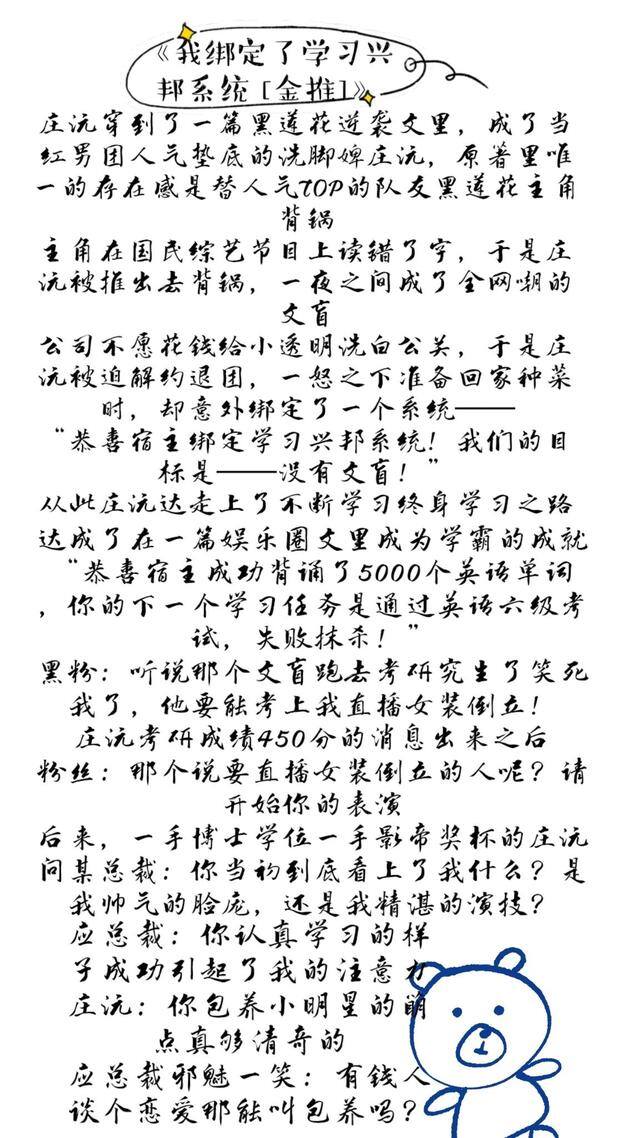 《我绑定了学习兴
邦系统[金推]》
庄沅穿到了一篇黑莲花逆袭文里，成了当
红男团人气垫底的洗脚婢庄沅，原著里唯
一的存在感是替人气TOP的队友黑莲花主角
背锅
主角在国民综艺节目上读错了字，于是庄
沅被推出去背锅，一夜之间成了全网嘲的
文盲
公司不愿花钱给小透明洗白公关，于是庄
沅被迫解约退团，一怒之下准备回家种菜
时，却意外绑定了一个系统——
“恭喜宿主绑定学习兴邦系统！我们的目
标是——没有文盲！”
从此庄沅达走上了不断学习终身学习之路
达成了在一篇娱乐圈文里成为学霸的成就
“恭喜宿主成功背诵了5000个英语单词
，你的下一个学习任务是通过英语六级考
试，失败抹杀！”
黑粉：听说那个文盲跑去考研究生了笑死
我了，他要能考上我直播女装倒立！
庄沅考研成绩450分的消息出来之后
粉丝：那个说要直播女装倒立的人呢？请
开始你的表演
后来，一手博士学位一手影帝奖杯的庄沅
问某总裁：你当初到底看上了我什么？是
我帅气的脸庞，还是我精湛的演技？
应总裁：你认真学习的样
子成功引起了我的注意力
庄沅：你包养小明星的萌
点真够清奇的
应总裁邪魅一笑：有钱人
谈个恋爱那能叫包养吗？